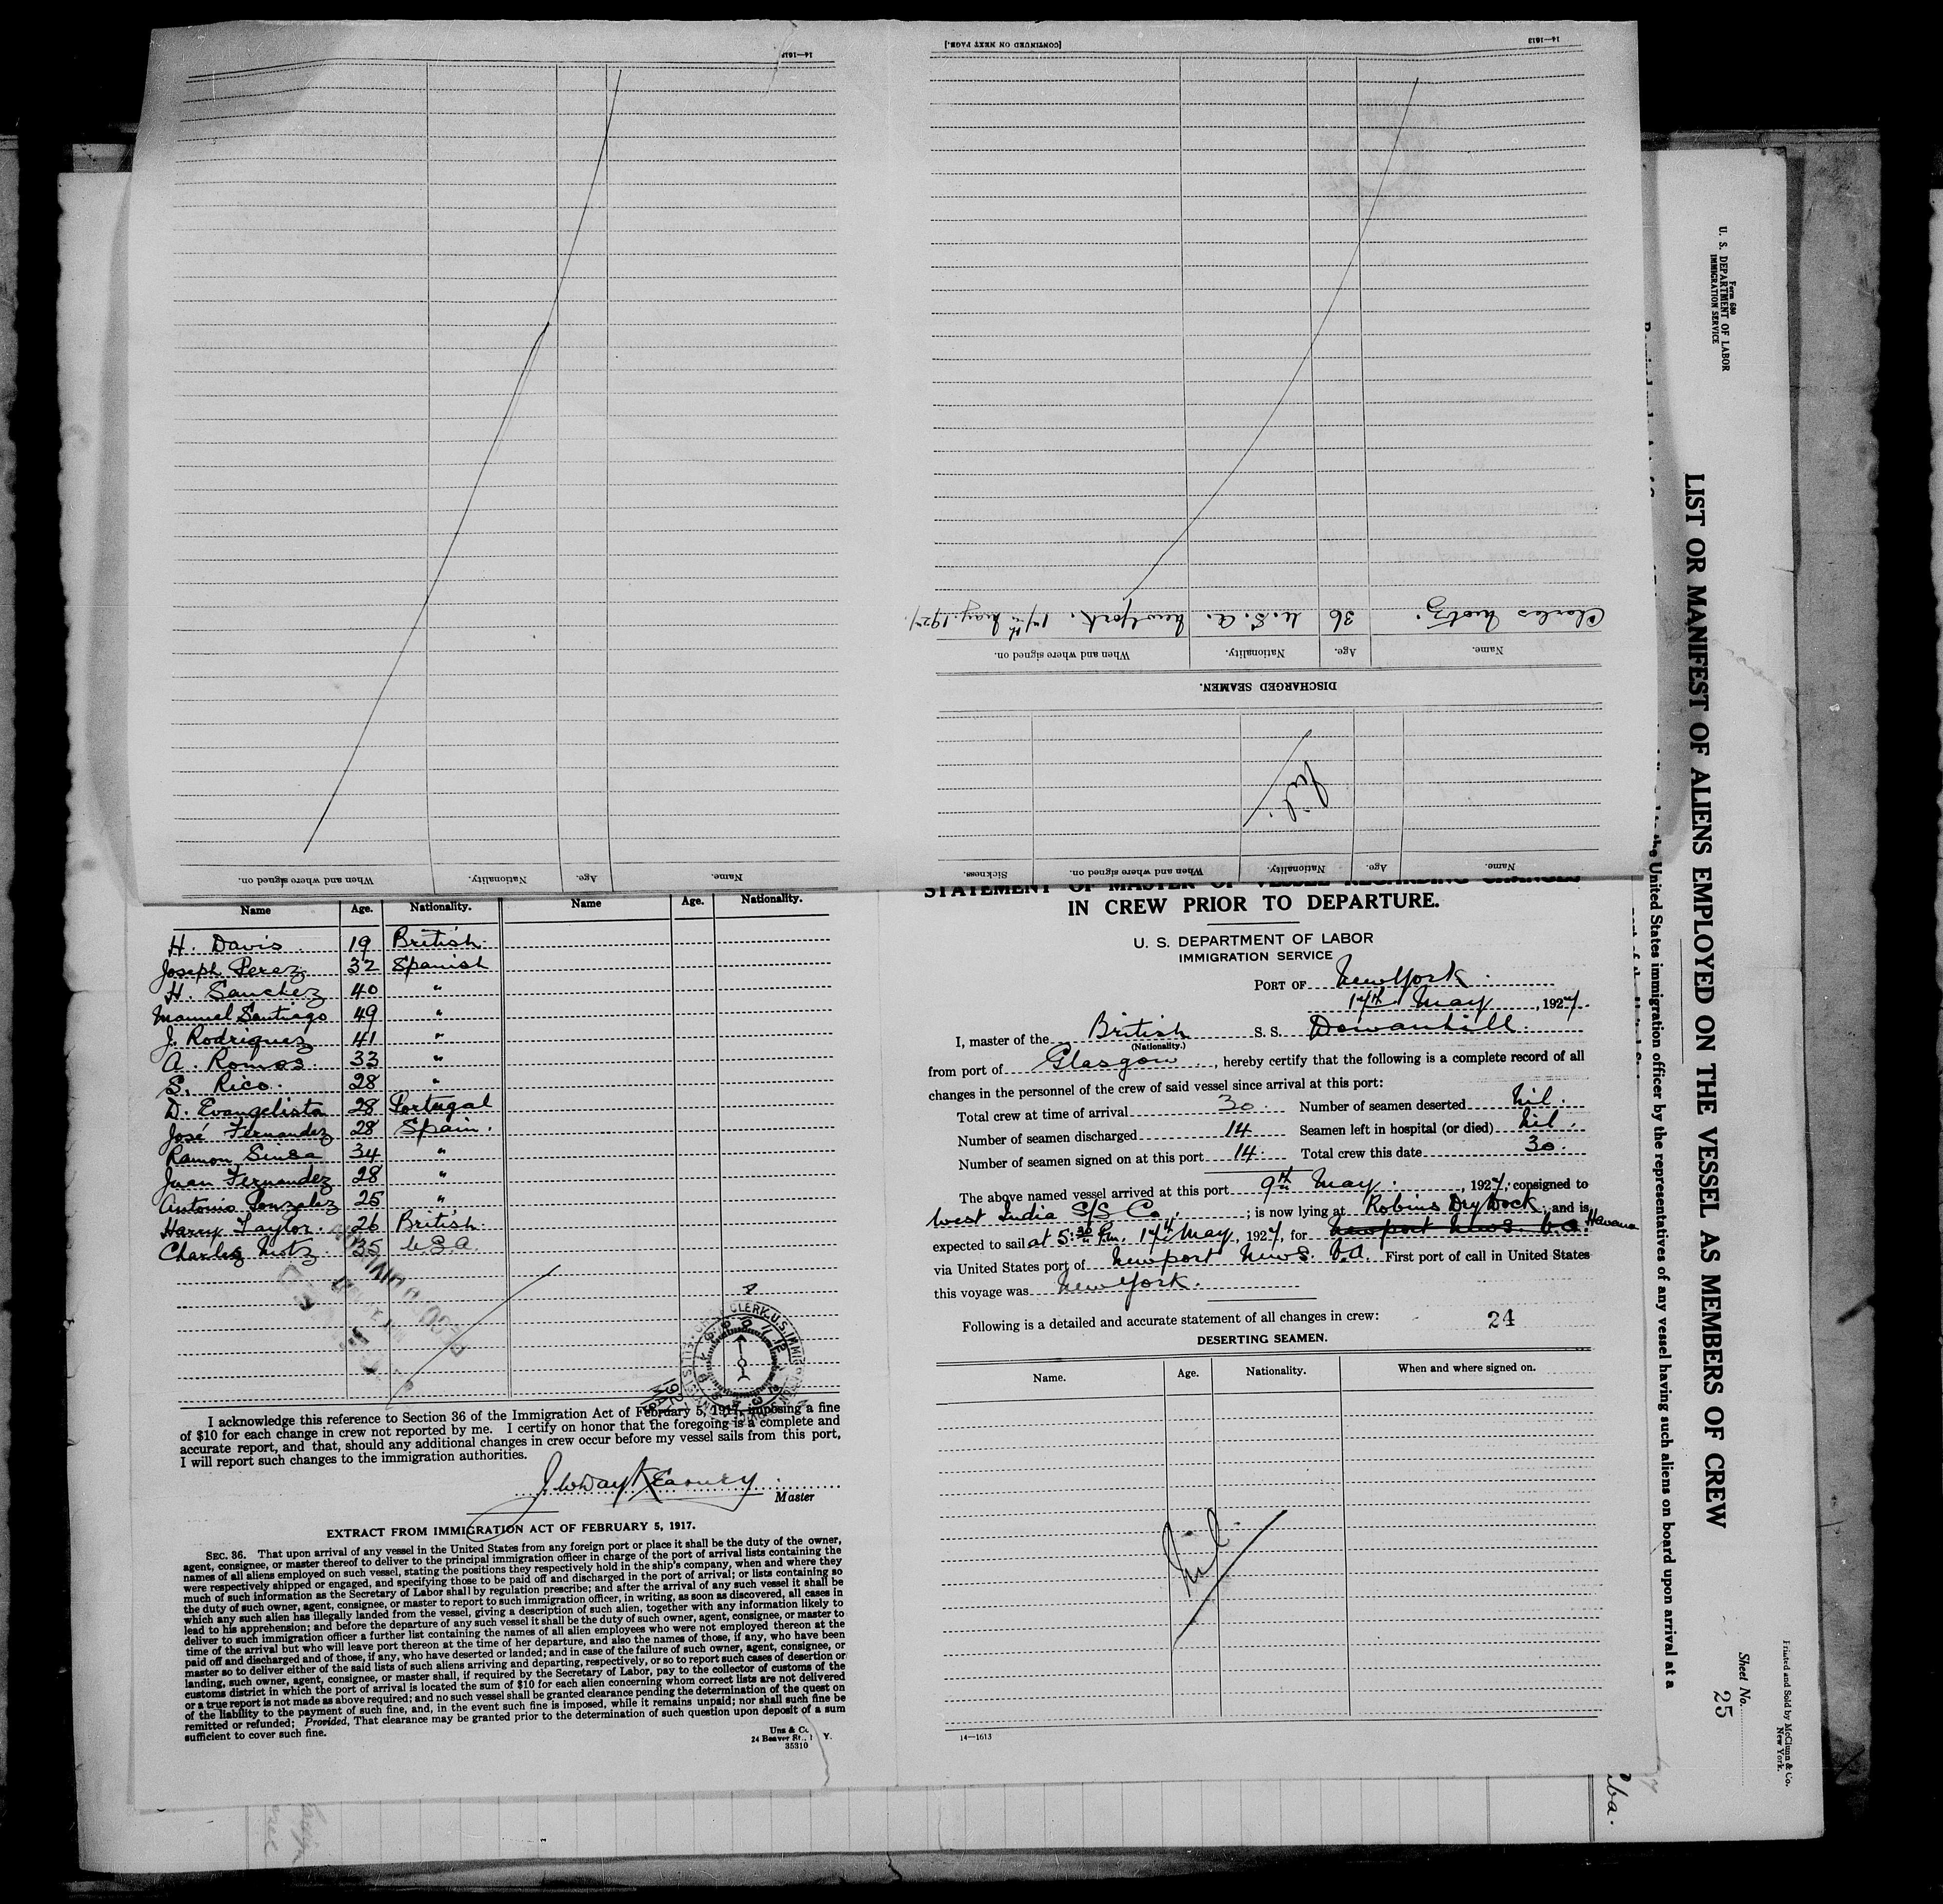 14—1613
[CONTINUED ON NEXT PAGE.]
14—1613
When and where signed on.
Nationality.
Age.
Name.
Name.
Age.
Nationality.
When and where signed on.
Sickness.
Nil
DISCHARGED SEAMEN.
Name.
Age.
Nationality.
When and where signed on.
Charles 36 U.S.A. New York. May. 1927.
Name Age. Nationality. Name Age. Nationality.
H. Davis 19 British
Joseph Perez 32 Spanish
H. Sanchez 40 "
Manuel Santiago 49 "
J. Rodriguez 41 "
A. Romos 33 "
S. Rico. 28 "
D. Evangelista 28 Portugal
José Fernandez 28 Spain.
Ramon 34 "
Juan Fernandez 28 "
Antonio Gonzalez 25 "
Harry Taylor. 26 British
Charles 35 U.S.A.
I acknowledge this reference to Section 36 of the Immigration Act of February 5, 1917, imposing a fine
of $10 for each change in crew not reported by me. I certify on honor that the foregoing is a complete and
accurate report, and that, should any additional changes in crew occur before my vessel sails from this port,
I will report such changes to the immigration authorities.
Master
EXTRACT FROM IMMIGRATION ACT OF FEBRUARY 5, 1917.
SEC. 36. That upon arrival of any vessel in the United States from any foreign port or place it shall be the duty of the owner,
agent, consignee, or master thereof to deliver to the principal immigration officer in charge of the port of arrival lists containing the
names of all aliens employed on such vessel, stating the positions they respectively hold in the ship's company, when and where they
were respectively shipped or engaged, and specifying those to be paid off and discharged in the port of arrival; or lists containing so
much of such information as the Secretary of Labor shall by regulation prescribe; and after the arrival of any such vessel it shall be
the duty of such owner, agent, consignee, or master to report to such immigration officer, in writing, as soon as discovered, all cases in
which any such alien has illegally landed from the vessel, giving a description of such alien, together with any information likely to
lead to his apprehension; and before the departure of any such vessel it shall be the duty of such owner, agent, consignee, or master to
deliver to such immigration officer a further list containing the names of all alien employees who were not employed thereon at the
time of the arrival but who will leave port thereon at the time of her departure, and also the names of those, if any, who have been
paid off and discharged and of those, if any, who have deserted or landed; and in case of the failure of such owner, agent, consignee, or
master so to deliver either of the said lists of such aliens arriving and departing, respectively, or so to report such cases of desertion or
landing, such owner, agent, consignee, or master shall, if required by the Secretary of Labor, pay to the collector of customs of the
customs district in which the port of arrival is located the sum of $10 for each alien concerning whom correct lists are not delivered
or a true report is not made as above required; and no such vessel shall be granted clearance pending the determination of the quest on
of the liability to the payment of such fine, and, in the event such fine is imposed, while it remains unpaid; nor shall such fine be
remitted or refunded; Provided, That clearance may be granted prior to the determination of such question upon deposit of a sum
sufficient to cover such fine.
24 Beaver St., Y.
35310
STATEMENT OF MASTER OF VESSEL REGARDING CHANGES
IN CREW PRIOR TO DEPARTURE.
U. S. DEPARTMENT OF LABOR
IMMIGRATION SERVICE
PORT OF New York.
14th May, 1927.
I, master of the British S. S. Dowanhill.
(Nationality.)
from port of Glasgow, hereby certify that the following is a complete record of all
changes in the personnel of the crew of said vessel since arrival at this port:
Total crew at time of arrival 30. Number of seamen deserted nil.
Number of seamen discharged 14 Seamen left in hospital (or died) nil.
Number of seamen signed on at this port 14. Total crew this date 30.
The above named vessel arrived at this port 9th May., 1927, consigned to
West India S/S Co.; is now lying at Robins Dry Dock, and is
expected to sail at 5:30 P.m. 14th May, 1927, for Newport News. V.A. Havana
via United States port of Newport News. V.A. First port of call in United States
this voyage was New York.
Following is a detailed and accurate statement of all changes in crew: 24
DESERTING SEAMEN.
Name. Age. Nationality. When and where signed on.
Nil.
14—1613
Form 680
U. S. DEPARTMENT OF LABOR
IMMIGRATION SERVICE
LIST OR MANIFEST OF ALIENS EMPLOYED ON THE VESSEL AS MEMBERS OF CREW
the United States immigration officer by the representatives of any vessel having such aliens on board upon arrival at a
Sheet No. 25
Printed and Sold by McClunn & Co.
New York.